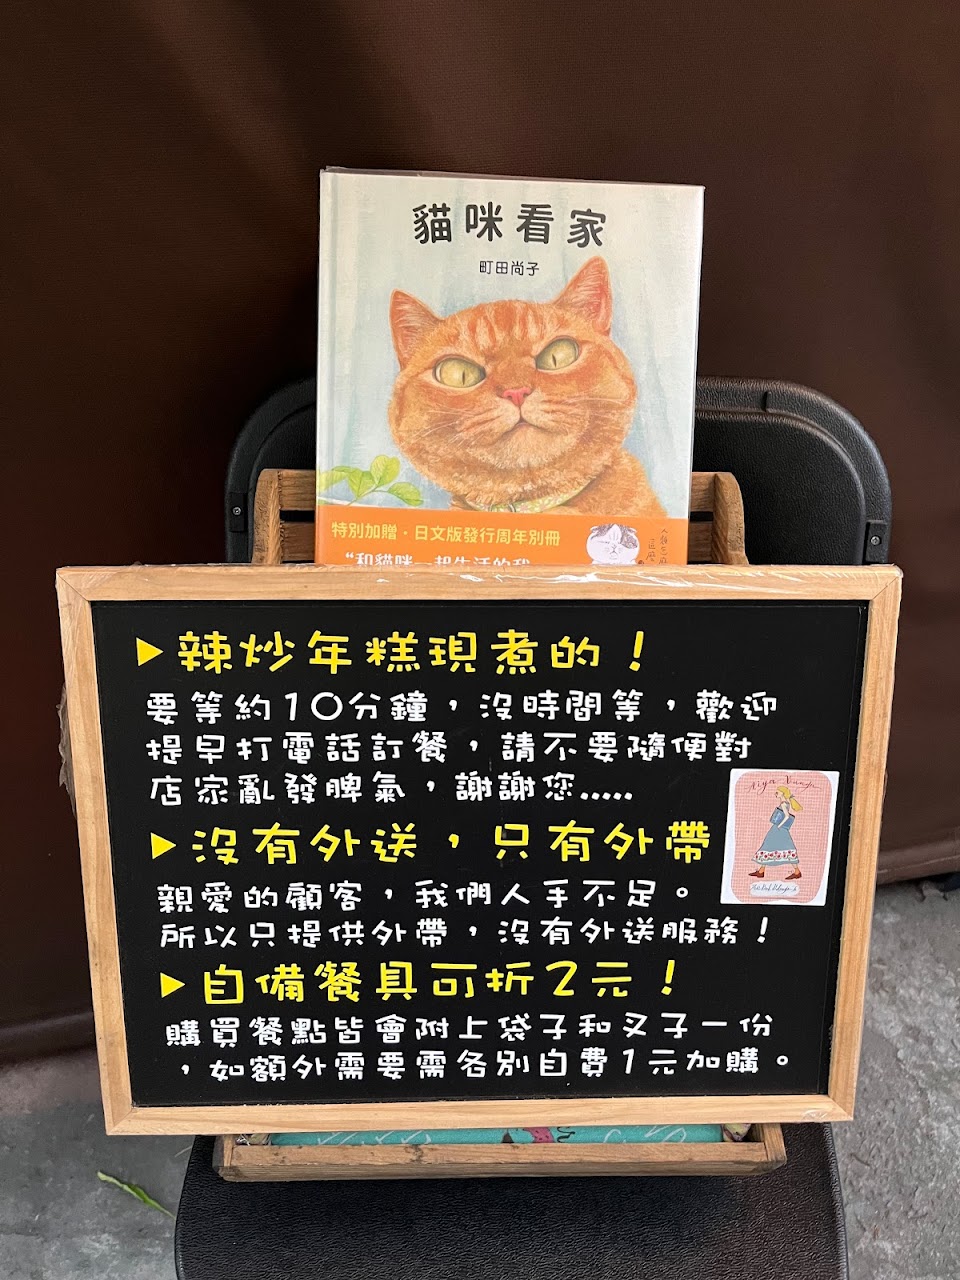 貓咪看家
町田尚子
特別加贈・日文版發行周年別冊
“和貓咪一起生活的我
▶辣炒年糕現煮的！
要等約10分鐘，沒時間等，歡迎
提早打電話訂餐，請不要隨便對
店家亂發脾氣，謝謝您.....
▶沒有外送，只有外帶
親愛的顧客，我們人手不足。
所以只提供外帶，沒有外送服務！
▶自備餐具可折2元！
購買餐點皆會附上袋子和叉子一份
，如額外需要需各別自費1元加購。